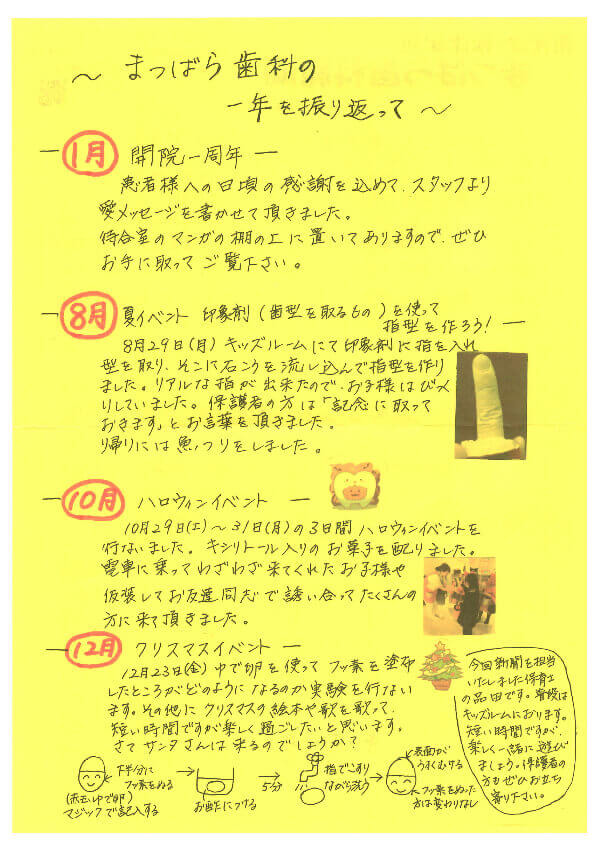 ～ まつばら歯科の
一年を振り返って ～
― 1月 開院一周年 ―
患者様への日頃の感謝を込めて、スタッフより
愛メッセージを書かせて頂きました。
待合室のマンガの棚の上に置いてありますので、ぜひ
お手に取ってご覧下さい。
― 8月 夏イベント 印象剤(歯型を取るもの)を使って
指型を作ろう! ―
8月29日(月) キッズルームにて印象剤に指を入れ
型を取り、そこに石こうを流し込んで指型を作り
ました。リアルな指が出来たので、お子様はびっく
りしていました。保護者の方は「記念に取って
おきます」とお言葉を頂きました。
帰りには魚つりをしました。
― 10月 ハロウィンイベント ―
10月29日(土)～31日(月)の3日間ハロウィンイベントを
行ないました。キシリトール入りのお菓子を配りました。
電車に乗ってわざわざ来てくれたお子様や
仮装してお友達同志で誘い合ってたくさんの
方に来て頂きました。
― 12月 クリスマスイベント ―
12月23日(金) ゆで卵を使ってフッ素を塗布
したところがどのようになるのか実験を行ない
ます。その他にクリスマスの絵本や歌を歌って、
短い時間ですが楽しく過ごしたいと思います。
さてサンタさんは来るのでしょうか?
下半分に
フッ素をぬる
(赤玉ゆで卵)
マジックで記入する
お酢につける
5分
指でこすり
ながら洗う
表面が
うすくむける
フッ素をぬった
方は変わりなし
今回新聞を担当
いたしました保育士
の品田です。普段は
キッズルームにおります。
短い時間ですが、
楽しく一緒に遊び
ましょう。保護者の
方もぜひお立ち
寄り下さい。